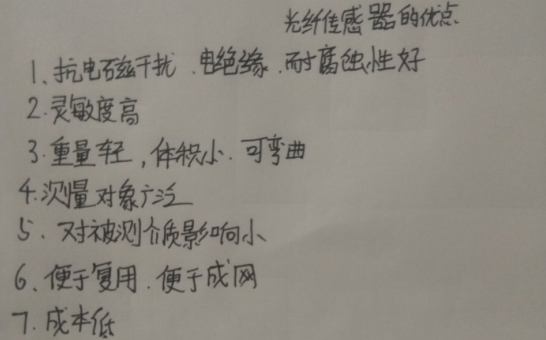 光纤传感器的优点
1、抗电磁干扰、电绝缘、耐腐蚀性好
2.灵敏度高
3.重量轻，体积小.可弯曲
4.测量对象广泛
5、对被测介质影响小
6、便于复用.便于成网
7.成本低